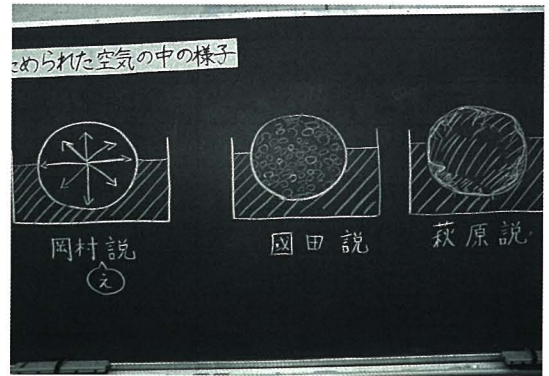 められた空気の中の様子
岡村説
え
國田説
萩原説